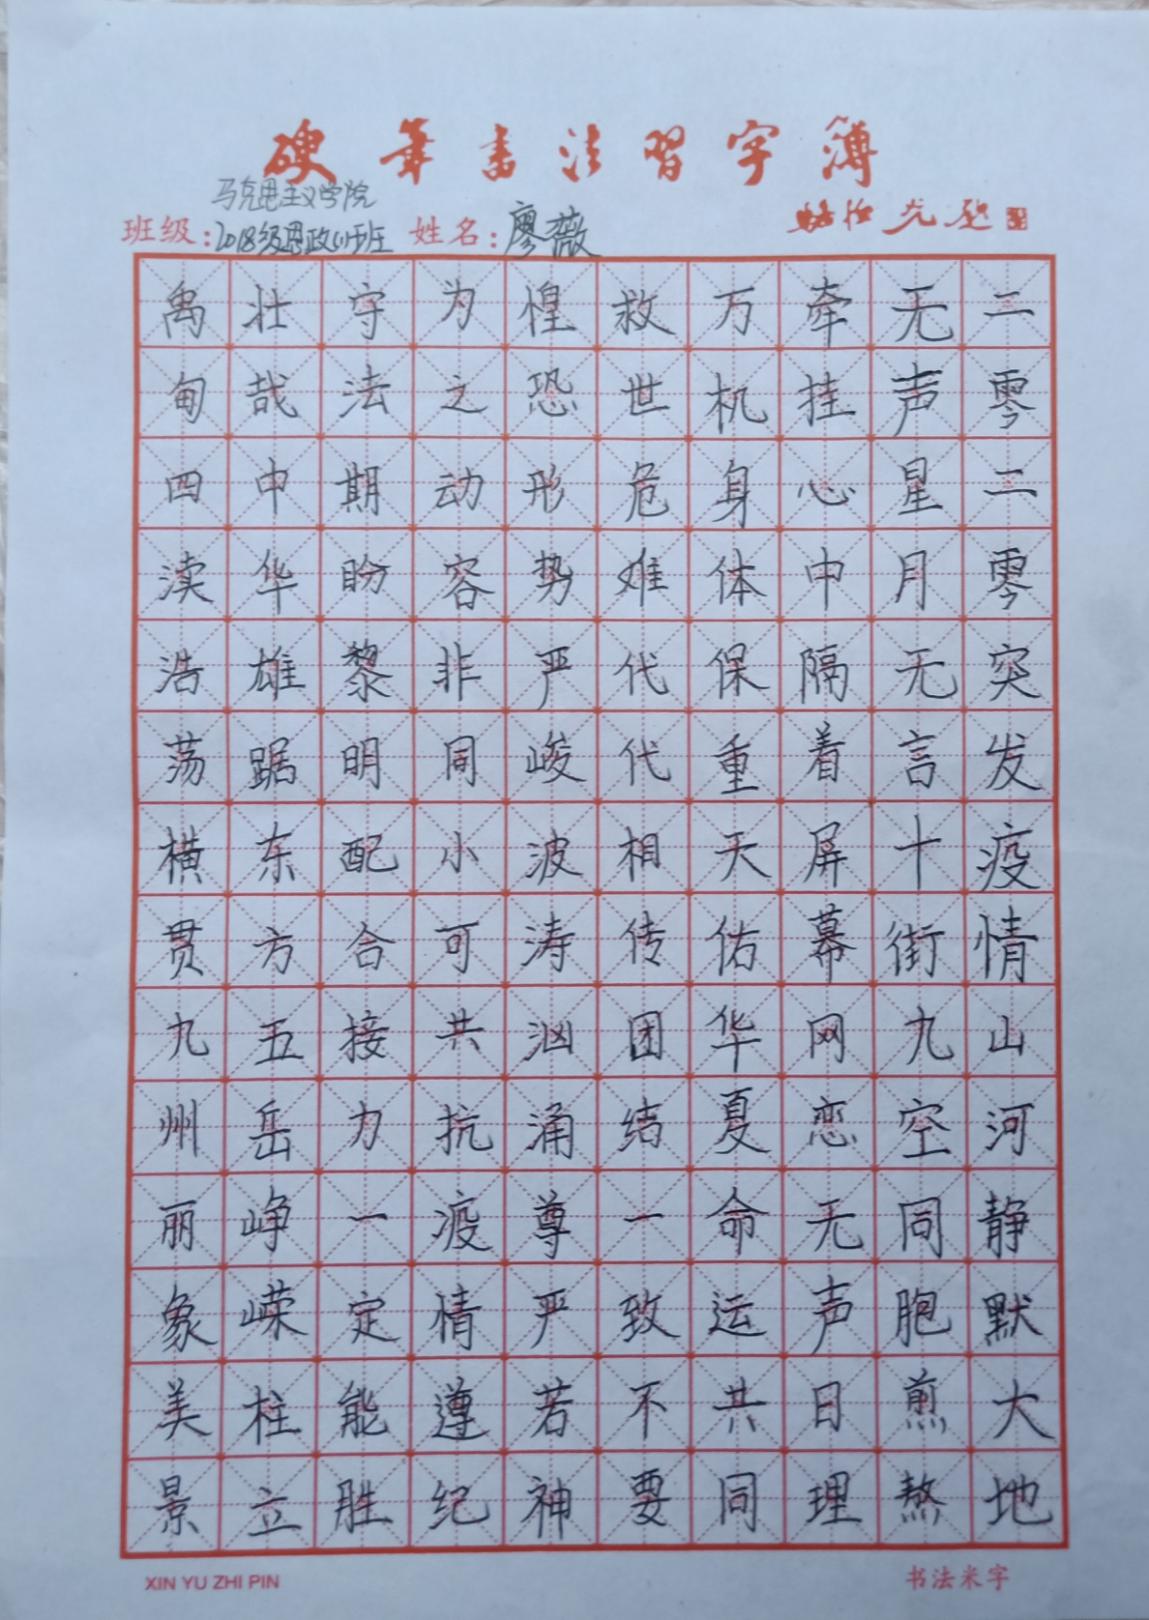 硬笔书法习字簿
马克思主义学院
班级：2018级思政(1)班 姓名：廖薇
二零二零突发疫情山河静默大地
无声星月无言十街九空同胞煎熬
牵挂心中隔着屏幕网恋无声日理
万机身体保重天佑华夏命运共同
救世危难代代相传团结一致不要
惶恐形势严峻波涛汹涌尊严若神
为之动容非同小可共抗疫情遵纪
守法期盼黎明配合接力一定能胜
壮哉中华雄踞东方五岳峥嵘柱立
禹甸四渎浩荡横贯九州丽象美景
XIN YU ZHI PIN
书法米字